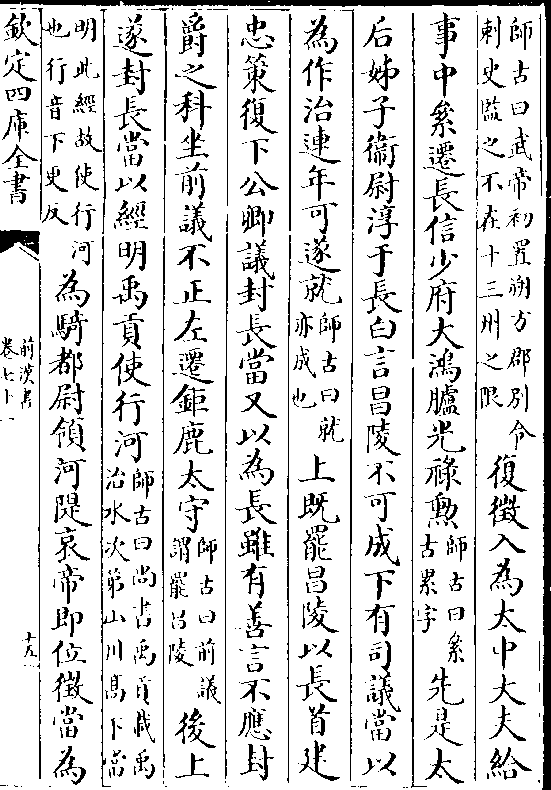 師古曰武帝初置朔方郡别令
刺史監之不在十三州之限
復徵入為太中大夫給
事中絫遷長信少府大鴻臚光祿勲
師古曰絫
古累字
先是太
后姊子衞尉淳于長白言昌陵不可成下有司議當以
為作治連年可遂就
師古曰就
亦成也
上既罷昌陵以長首建
忠策復下公卿議封長當又以為長雖有善言不應封
爵之科坐前議不正左遷鉅鹿太守
師古曰前議
謂罷昌陵
後上
遂封長當以經明禹貢使行河
師古曰尚書禹貢載禹
治水次第山川髙下當
明此經故使行河
也行音下更反
為騎都尉領河隄哀帝即位徵當為
欽定四庫全書
前漢書
卷七十一
十五